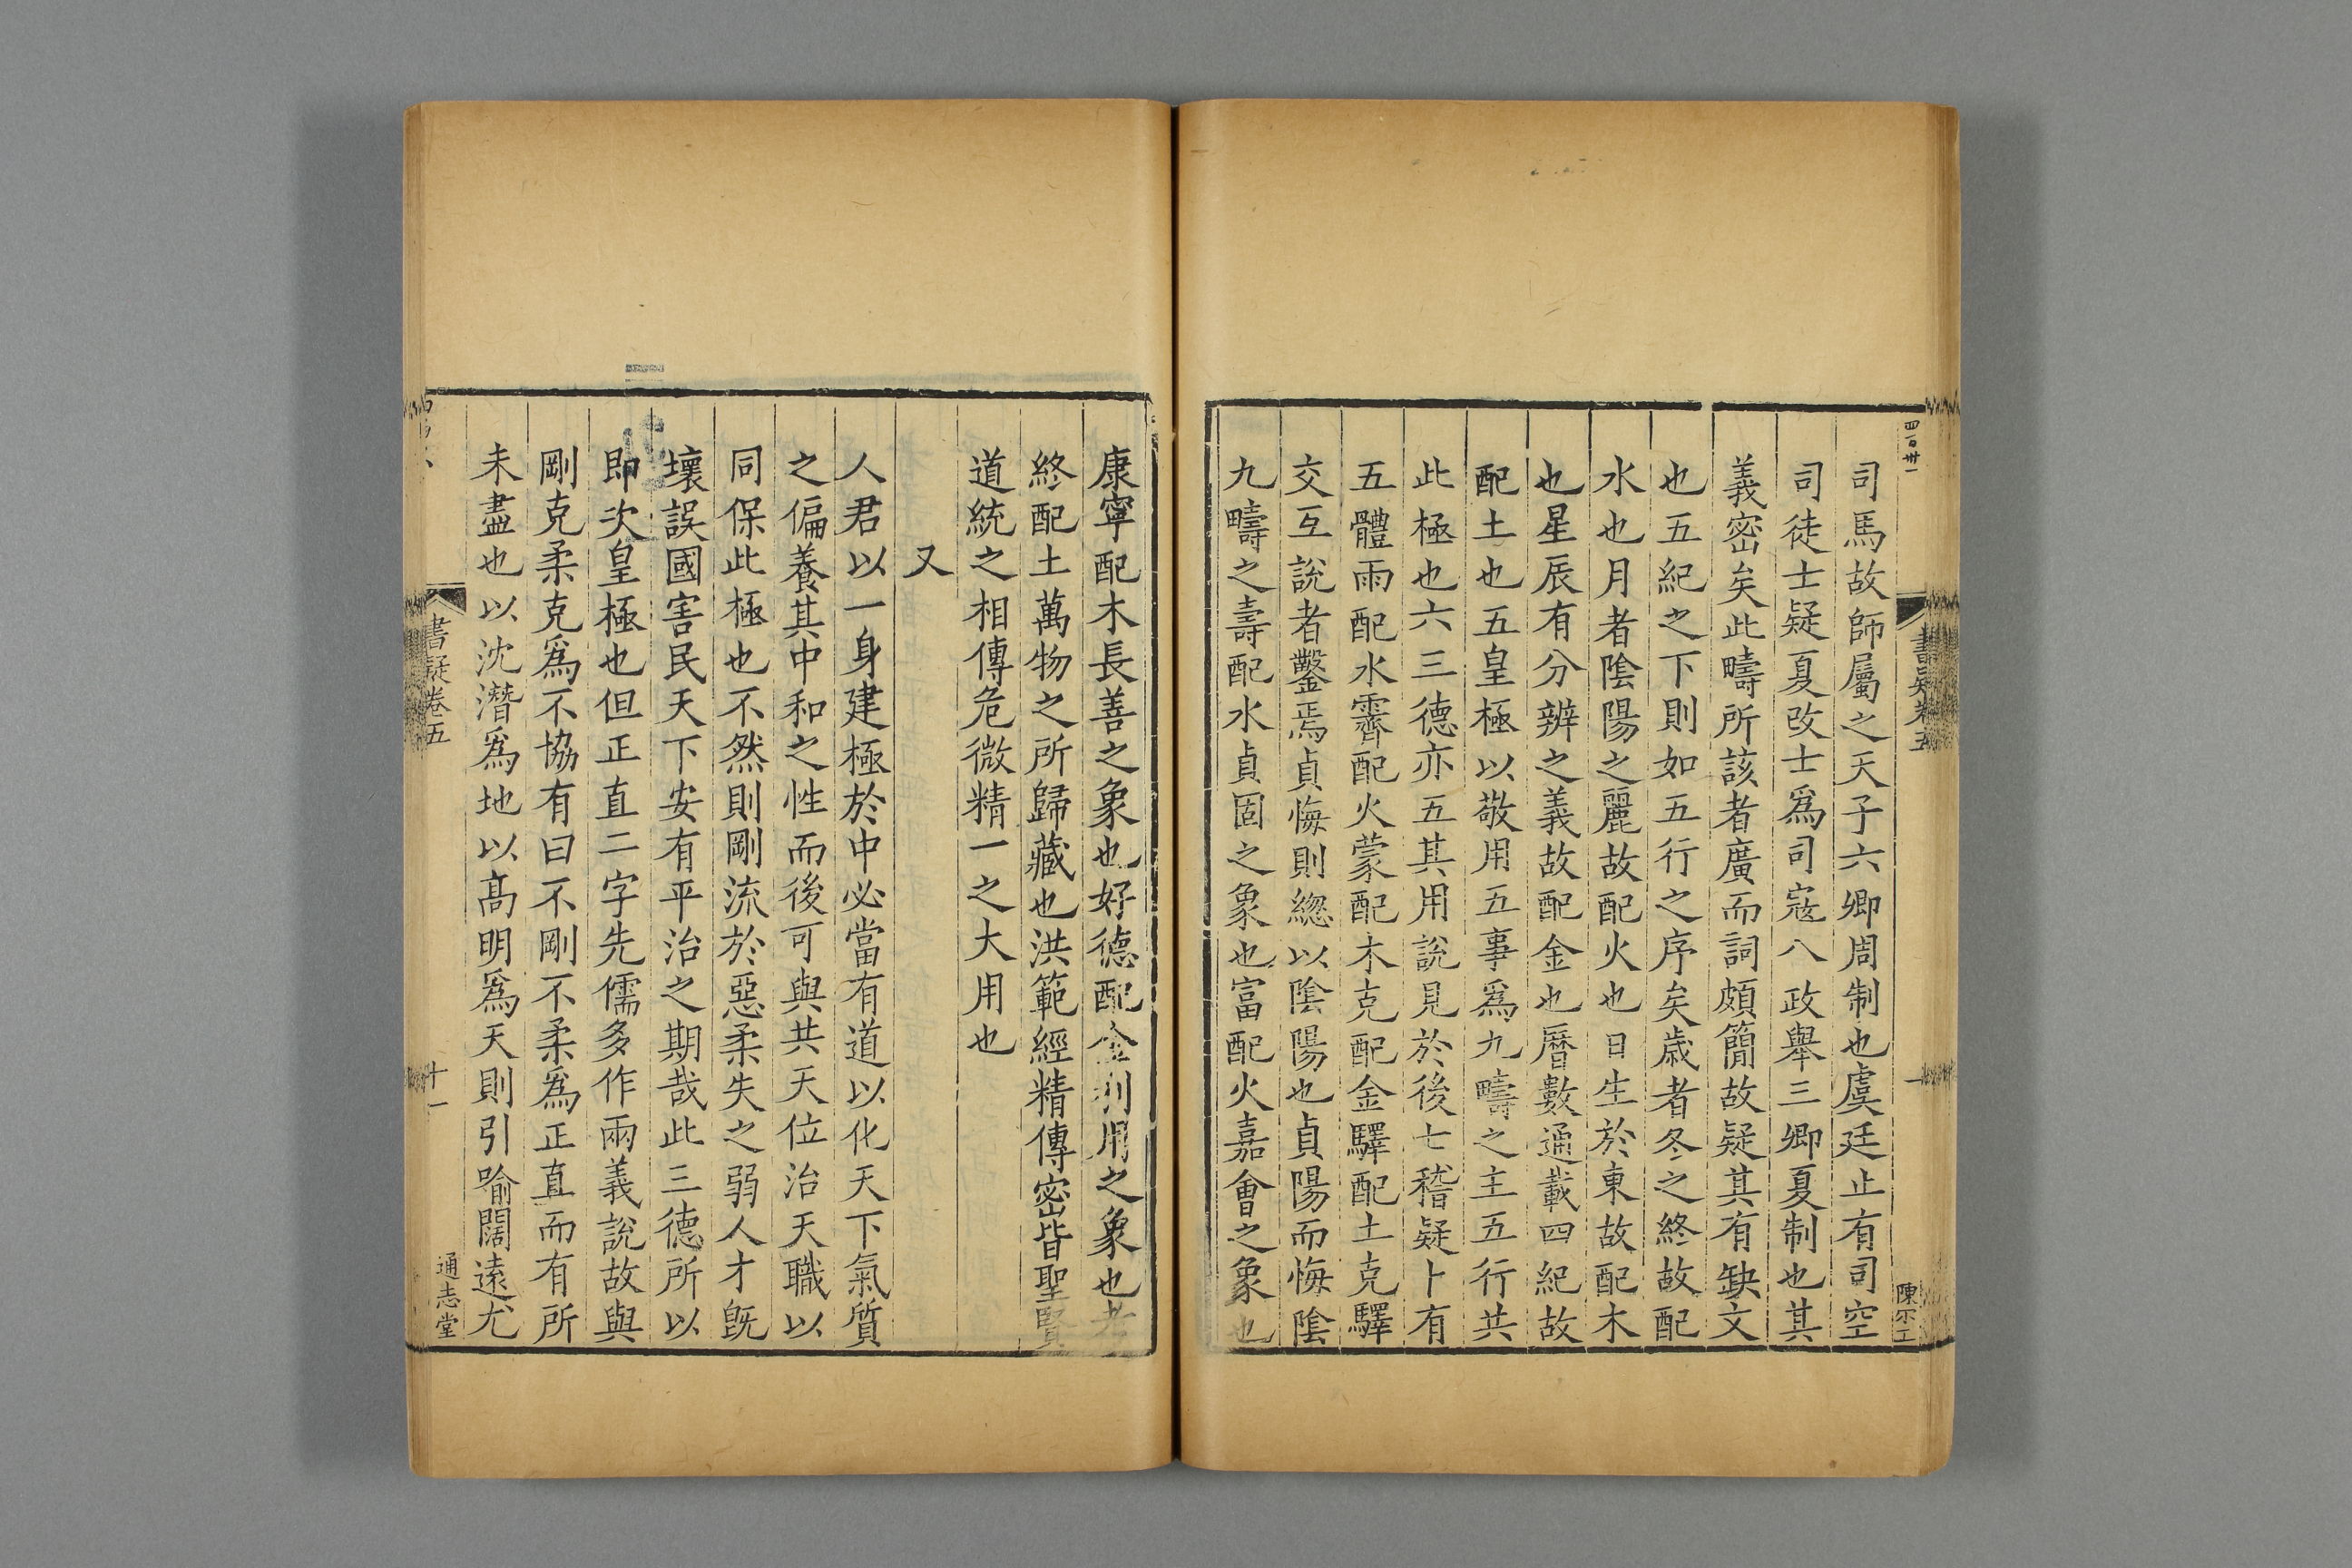 四百廿一
書疑卷五
陳不工
司馬故師屬之天子六卿周制也虞廷止有司空
司徒士疑夏改士爲司寇八政舉三卿夏制也其
義密矣此疇所該者廣而詞頗簡故疑其有缺文
也五紀之下則如五行之序矣歲者冬之終故配
水也月者陰陽之麗故配火也日生於東故配木
也星辰有分辨之義故配金也曆數通載四紀故
配土也五皇極以敬用五事爲九疇之主五行共
此極也六三德亦五其用說見於後七稽疑卜有
五體雨配水霽配火蒙配木克配金驛配土克驛
交互說者鑿焉貞悔則緫以陰陽也貞陽而悔陰
九疇之壽配水貞固之象也富配火嘉會之象也
康寧配木長善之象也好德配金利用之象也考
終配土萬物之所歸藏也洪範經精傳密皆聖賢
道統之相傳危微精一之大用也
又
人君以一身建極於中必當有道以化天下氣質
之偏養其中和之性而後可與共天位治天職以
同保此極也不然則剛流於惡柔失之弱人才旣
壞誤國害民天下安有平治之期哉此三德所以
即次皇極也但正直二字先儒多作兩義說故與
剛克柔克爲不協有曰不剛不柔爲正直而有所
未盡也以沈潛爲地以高明爲天則引喻闊遠尤
書疑卷五
十一
通志堂